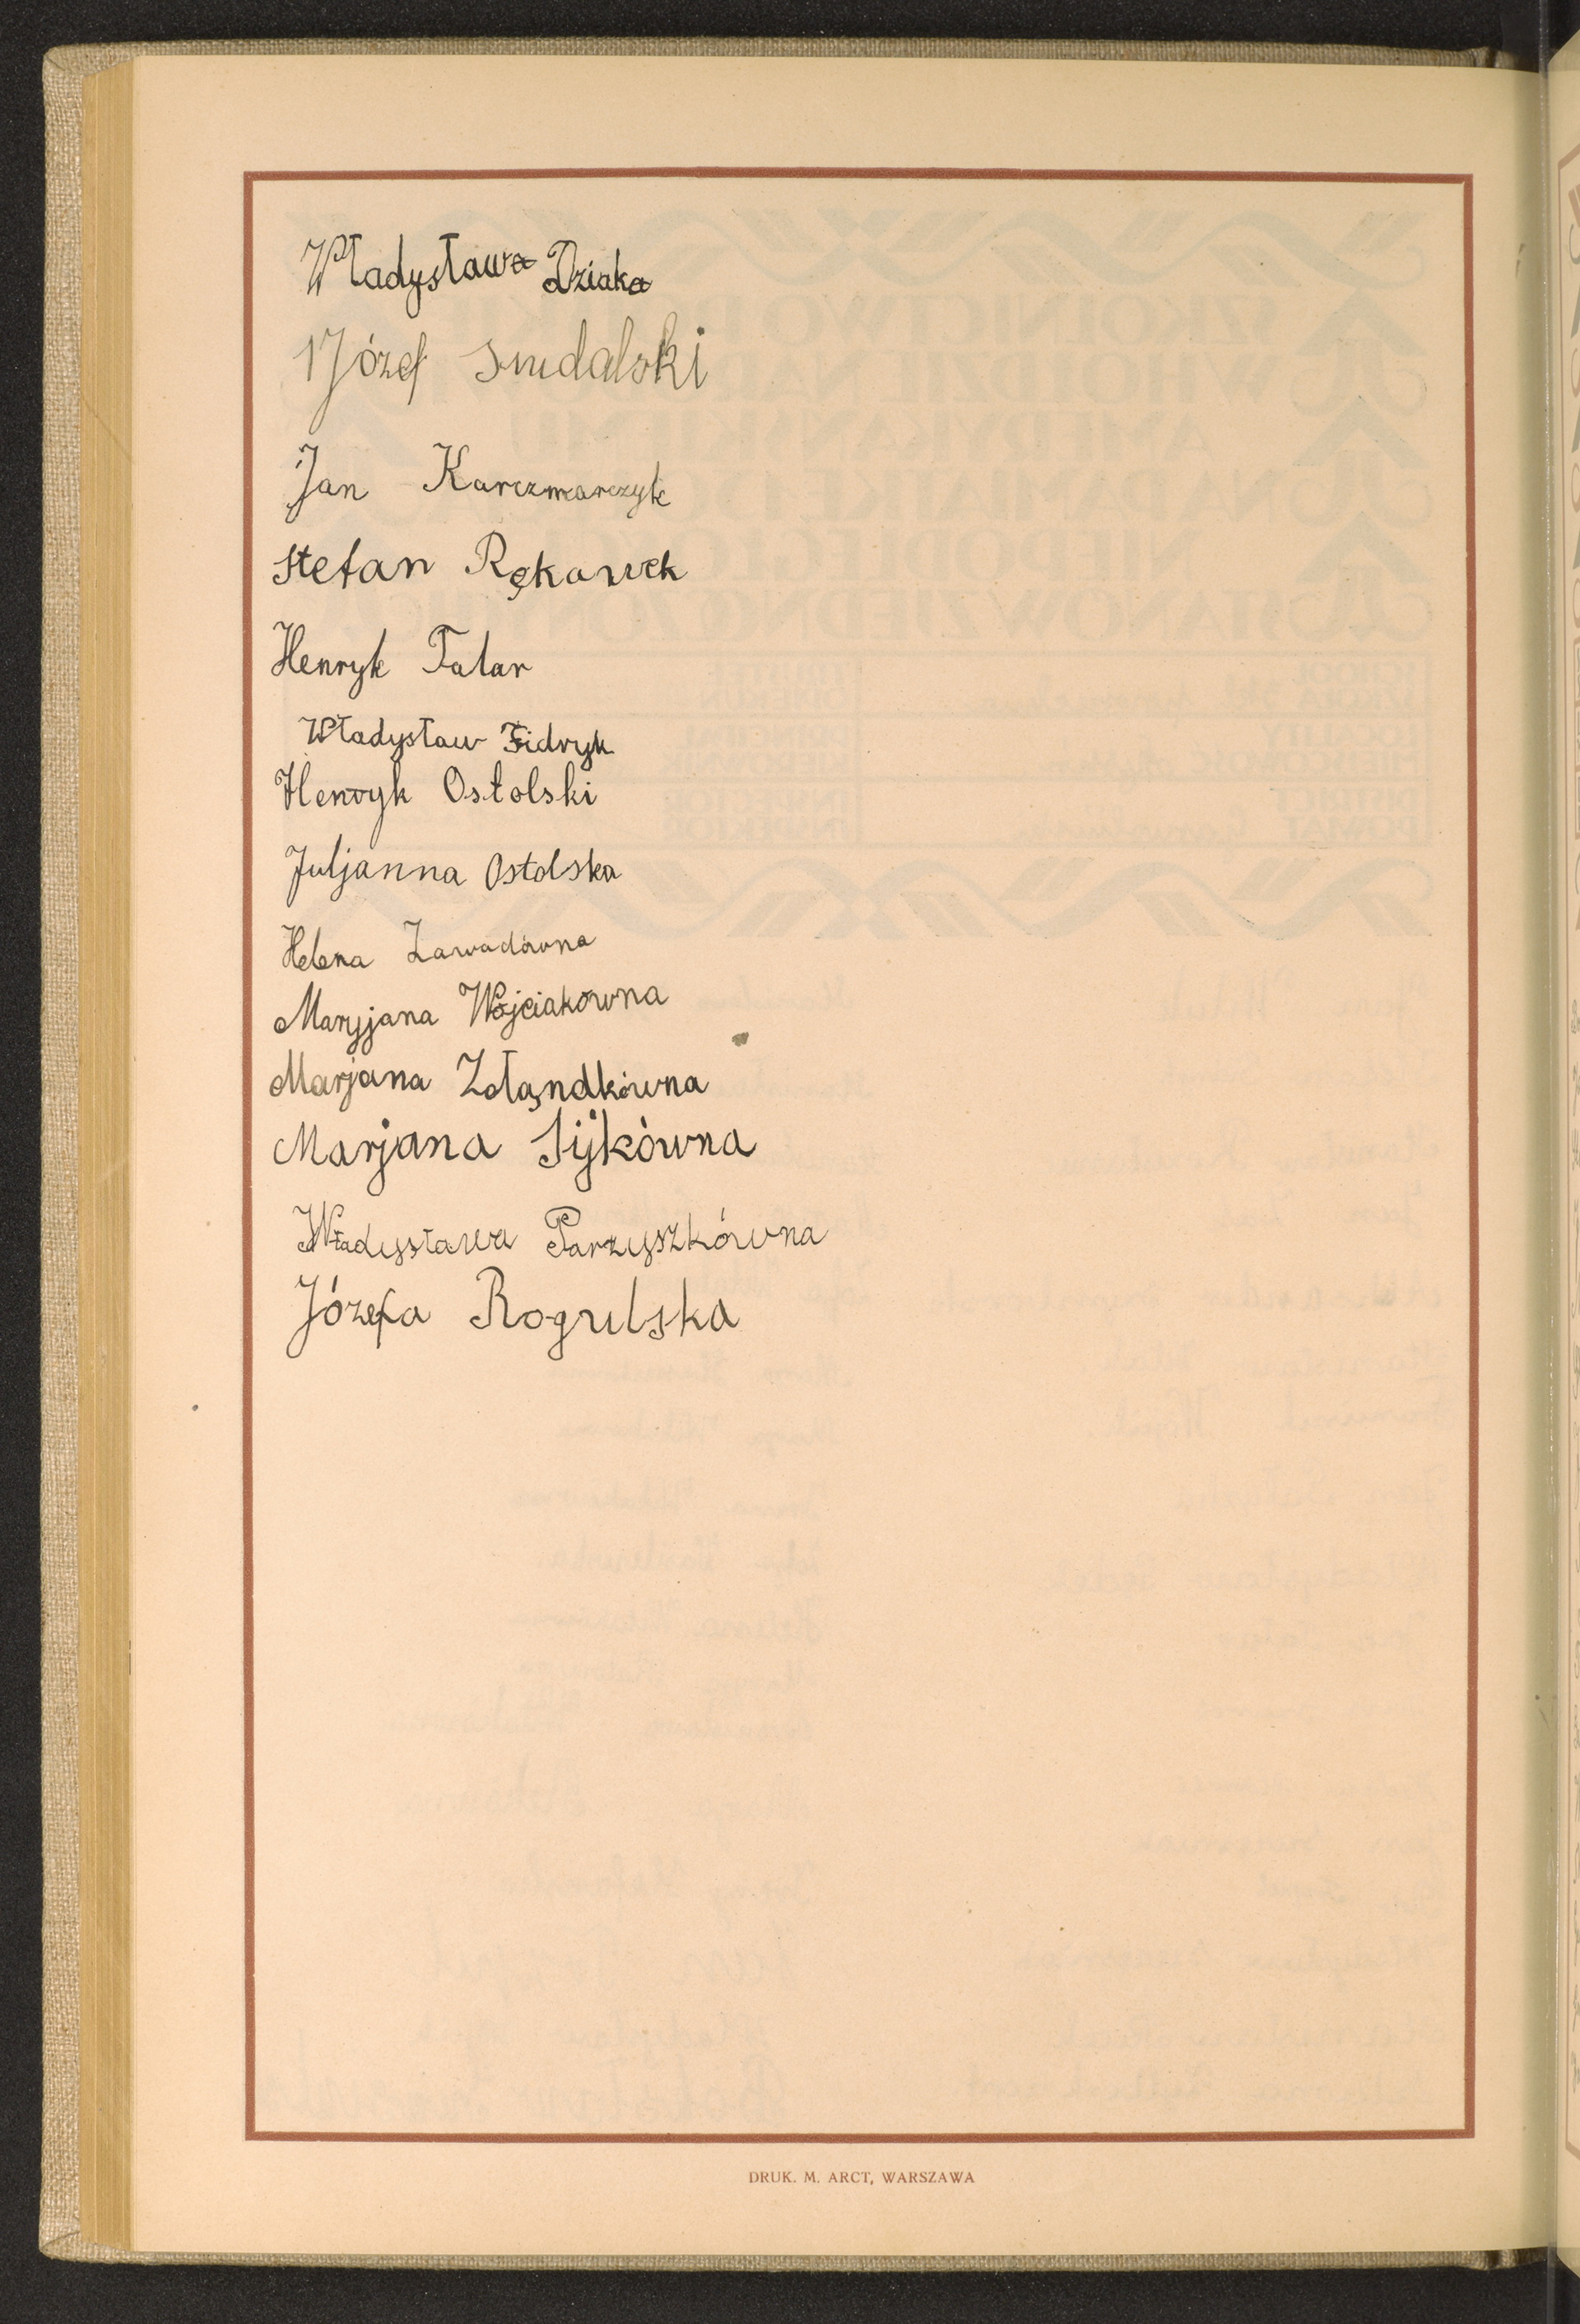 Władysława Dziaka
Józef Smdalski
Jan Karczmarczyk
Stefan Rękawek
Henryk Talar
Władysław Fidryk
Henryk Ostolski
Juljanna Ostolska
Helena Zawadówna
Maryjana Wojciakówna
Marjana Żołandkówna
Marjana Sijkówna
Władysława Parzyszkówna
Józefa Rogulska
DRUK. M. ARCT, WARSZAWA